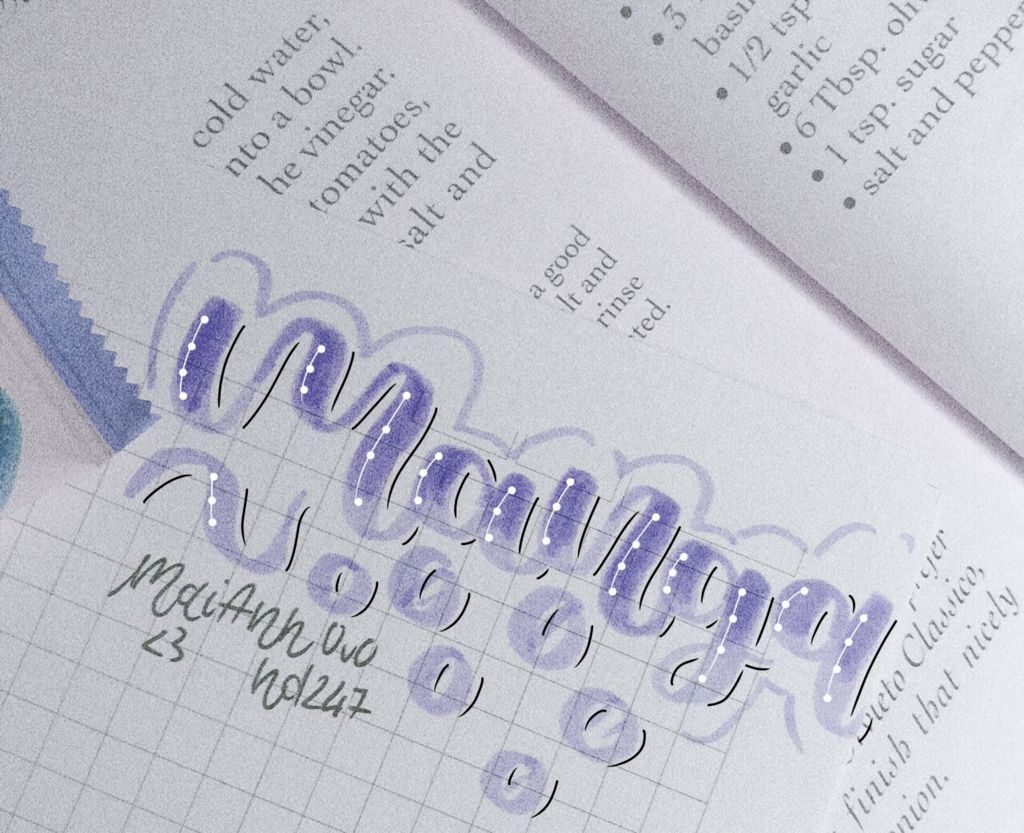 cold water,
nto a bowl.
he vinegar.
tomatoes,
with the
salt and
a good
lt and
rinse
ted.
• 3
basil
• 1/2 tsp
garlic
• 6 Tbsp. oliv
• 1 tsp. sugar
• salt and peppe
Manga
MaiAnh OvO
<3
hd247
Classico,
finish that nicely
nion.